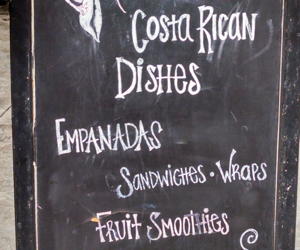 Costa Rican
Dishes
Empanadas
Sandwiches • Wraps
Fruit Smoothies